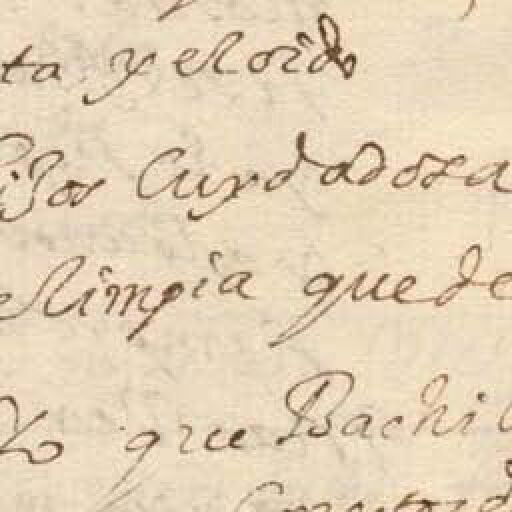 ta y el oido
Cuydadosa
limpia quede
Yo que Bachi